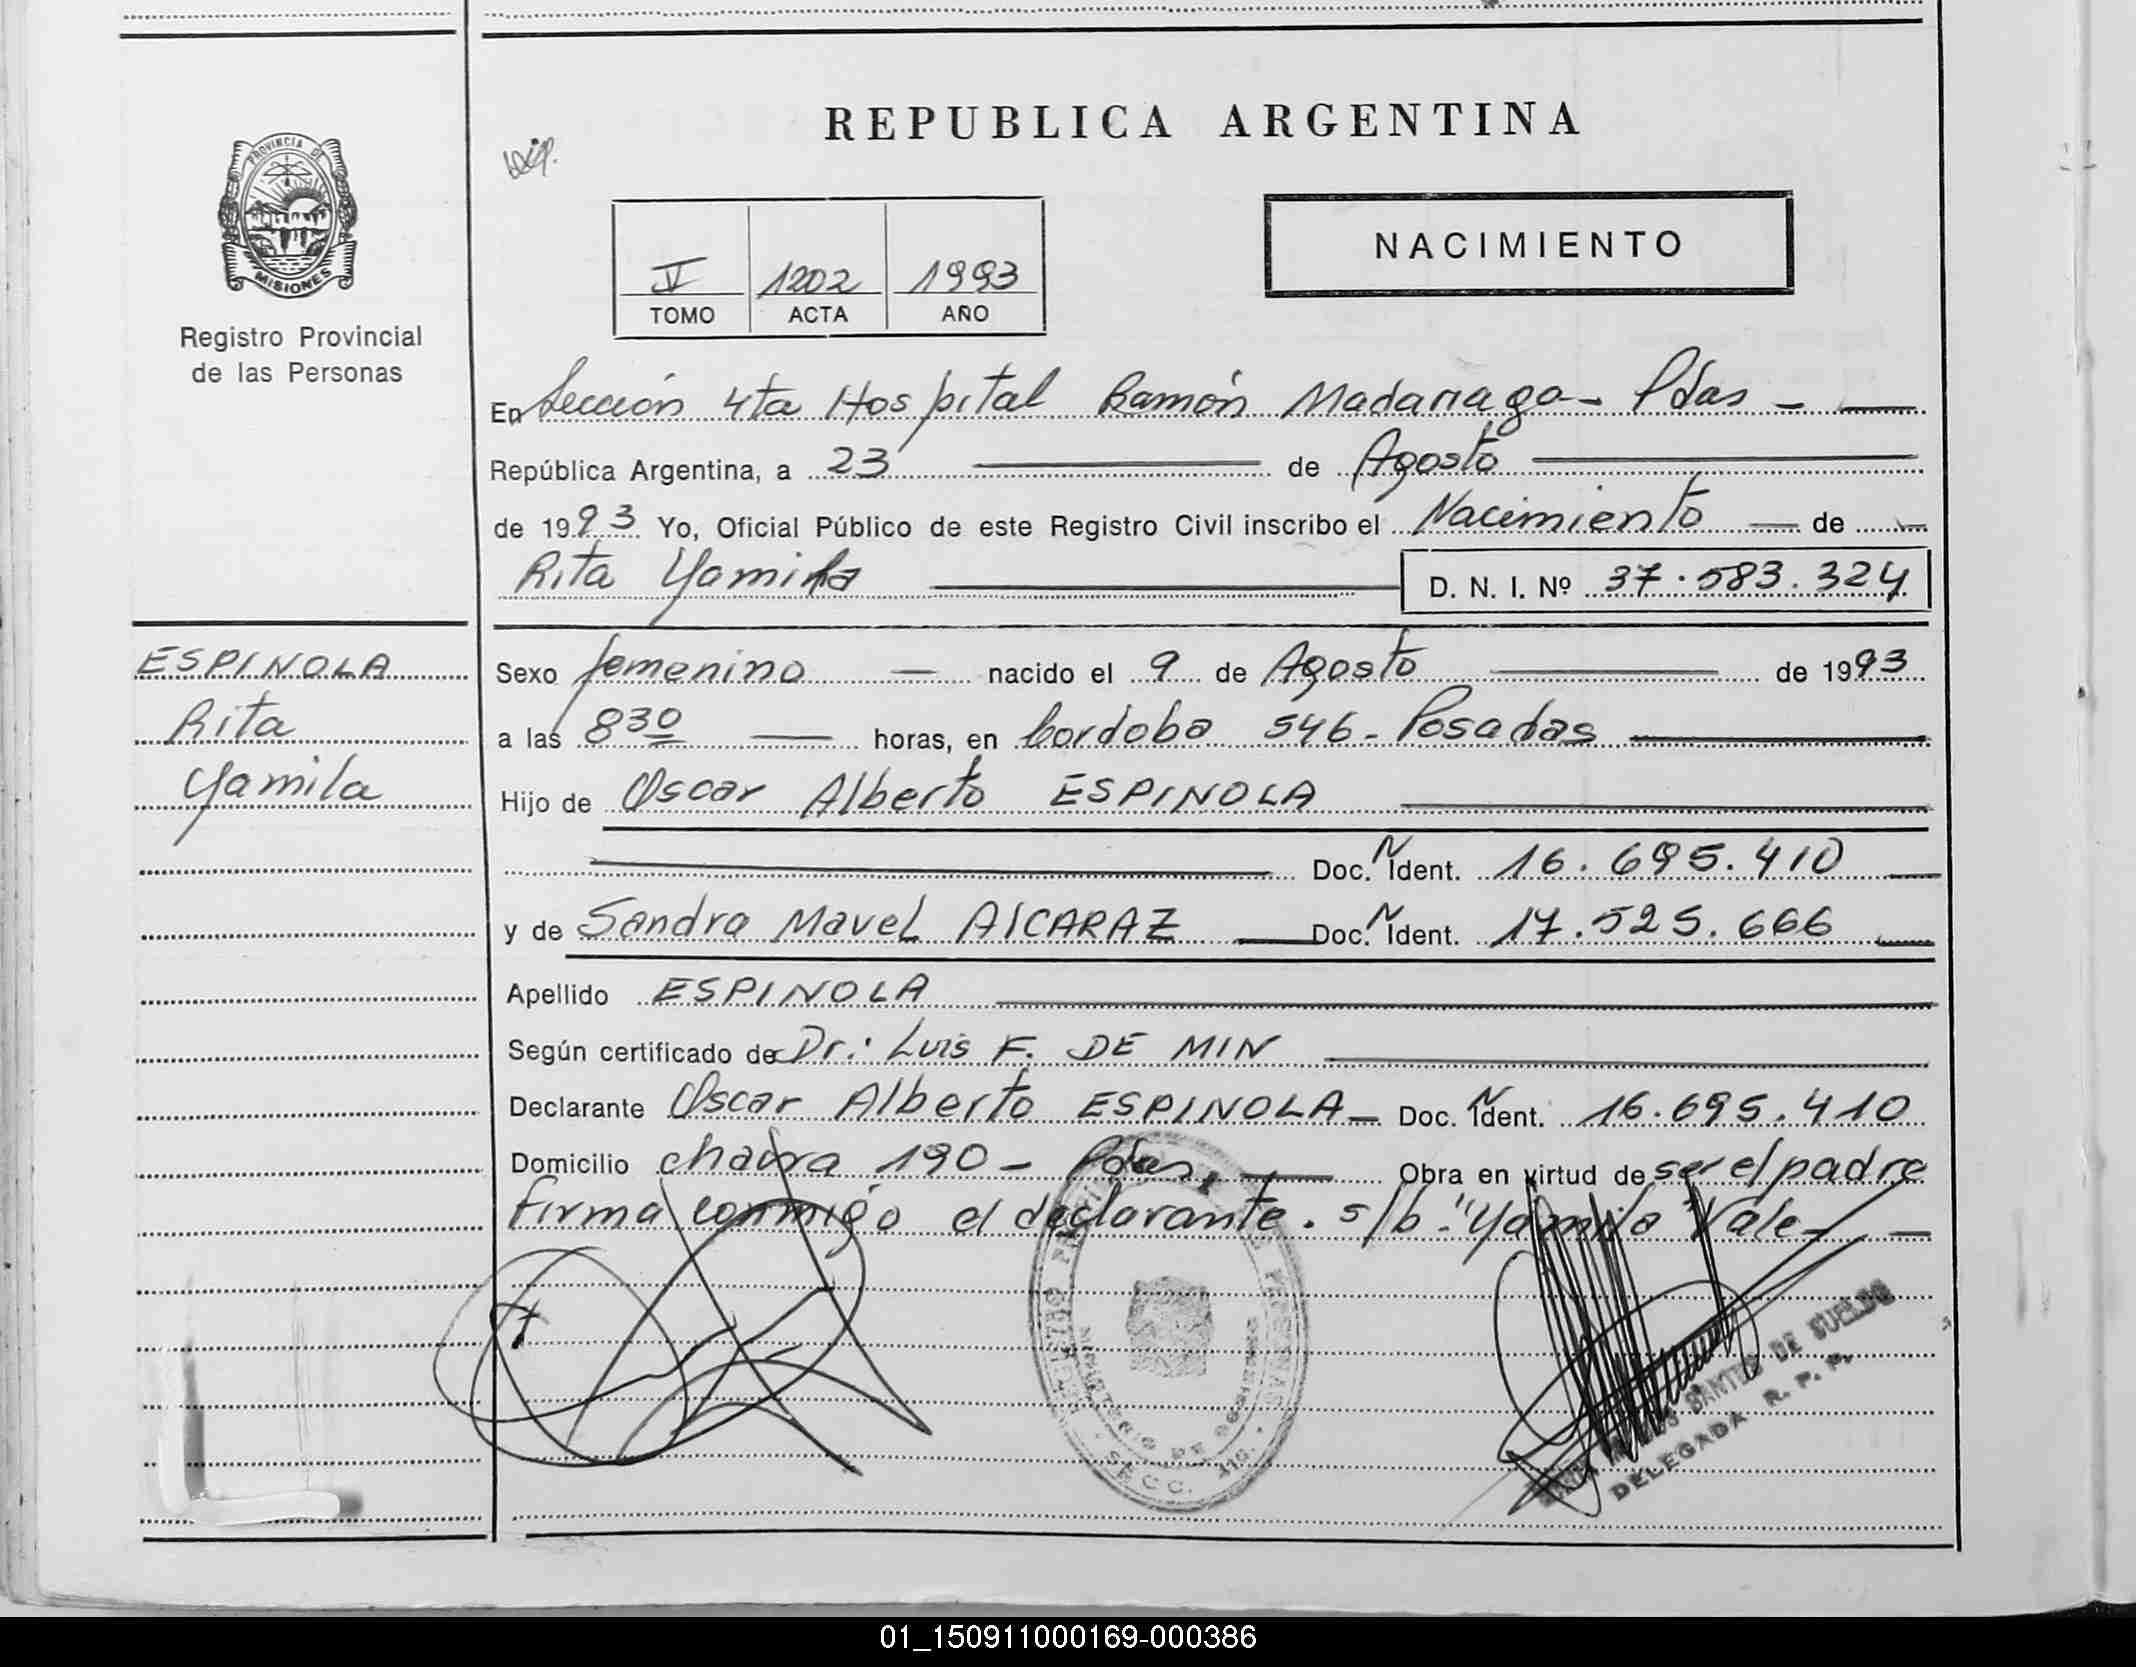 REPUBLICA ARGENTINA
PROVINCIA DE
MISIONES
Registro Provincial
de las Personas
NACIMIENTO
V 1202 1993
TOMO ACTA AÑO
En Sección 4ta Hospital Ramón Madariaga - Pdas -
República Argentina, a 23 de Agosto
de 1993 Yo, Oficial Público de este Registro Civil inscribo el Nacimiento de
Rita Yamila D. N. I. Nº 37.583.324
ESPINOLA
Rita
Yamila
Sexo femenino nacido el 9 de Agosto de 1993
a las 8 30 horas, en Cordoba 546 - Posadas
Hijo de Oscar Alberto ESPINOLA
Doc. N Ident. 16.695.410
y de Sandra Mavel AlCARAZ Doc. N Ident. 17.525.666
Apellido ESPINOLA
Según certificado de Dr.: Luis F. DE MIN
Declarante Oscar Alberto ESPINOLA - Doc. N Ident. 16.695.410
Domicilio chacra 190 - Pdas. Obra en virtud de ser el padre
firma conmigo el declarante. s/b. "Yamila" Vale
SANTOS DE SUELDO
DELEGADA R. P. P.
SECC.
01_150911000169-000386